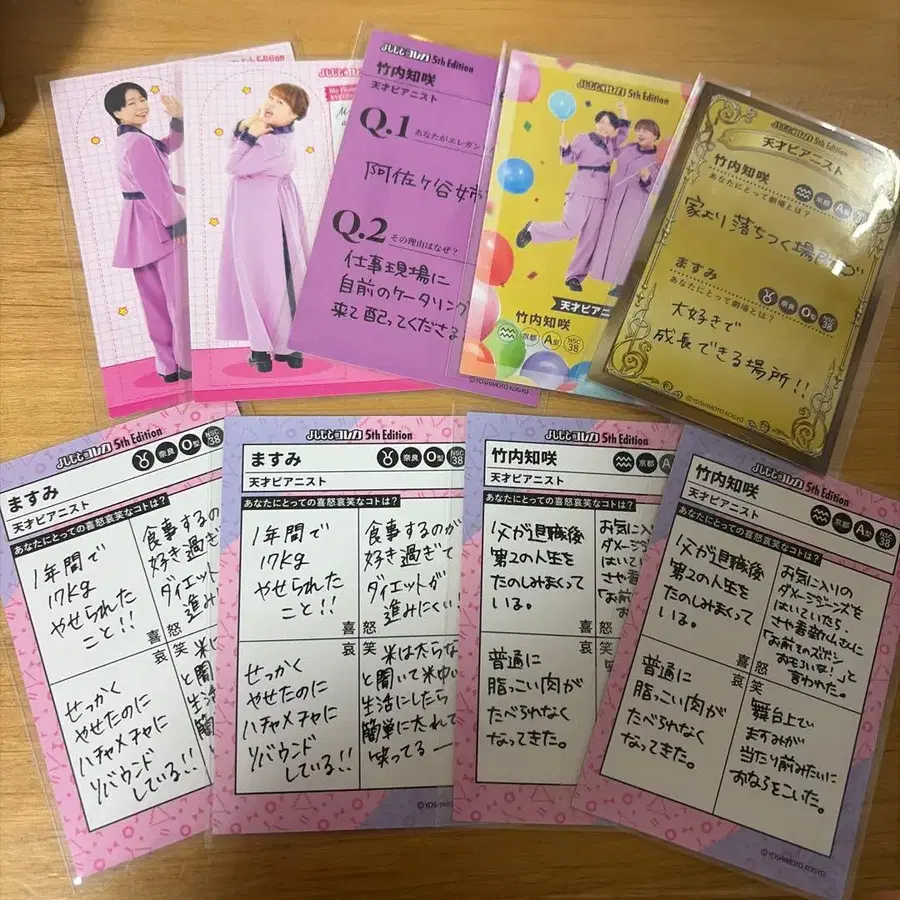 5th Edition
竹内知咲
天才ピアニスト
Q.1 あなたがエレガン
阿佐ヶ谷姉
Q.2 その理由はなぜ?
仕事現場に
自前のケータリング
来て配ってくださる
©YOSHIMOTO KOGYO
5th Edition
天才ピアニ
竹内知咲
京都 A型 NSC 38
5th Edition
天才ピアニスト
竹内知咲
京都 A
あなたにとって劇場とは?
家より落ちつく場所
ますみ
奈良 O型 NSC 38
あなたにとって劇場とは?
大好きで
成長できる場所!!
©YOSHIMOTO KOGYO
5th Edition
ますみ
奈良 O型 NSC 38
天才ピアニスト
あなたにとっての喜怒哀笑なコトは?
1年間で
17kg
やせられた
こと!!
喜
食事するの
好き過ぎ
ダイエット
進み
怒
せっかく
やせたのに
ハチャメチャに
リバウンド
している!!
哀
笑
米は
と聞い
生活に
簡単
笑っ
5th Edition
ますみ
奈良 O型 NSC 38
天才ピアニスト
あなたにとっての喜怒哀笑なコトは?
1年間で
17kg
やせられた
こと!!
喜
食事するのが
好き過ぎて
ダイエットが
進みにくい!
怒
せっかく
やせたのに
ハチャメチャに
リバウンド
している!!
哀
笑
米は太らな
と聞いて米中心
生活にしたら
簡単に太れて
笑ってるー
5th Edition
竹内知咲
京都 A
天才ピアニスト
あなたにとっての喜怒哀笑なコトは?
父が退職後
第2の人生を
たのしみまくって
いる。
喜
お気に入り
ダメージジーンズ
はいていたら
さや香新
「お前
怒
普通に
脂っこい肉が
たべられなく
なってきた。
哀
笑
5th Edition
竹内知咲
京都 A型 NSC 38
天才ピアニスト
あなたにとっての喜怒哀笑なコトは?
父が退職後
第2の人生を
たのしみまくって
いる。
喜
お気に入りの
ダメージジーンズを
はいていたら
さや香新山さんに
「お前そのズボン
おもろいな!」と
言われた。
怒
普通に
脂っこい肉が
たべられなく
なってきた。
哀
笑
舞台上で
ますみが
当たり前みたいに
おならをこいた。
©YOSHIMOTO KOGYO